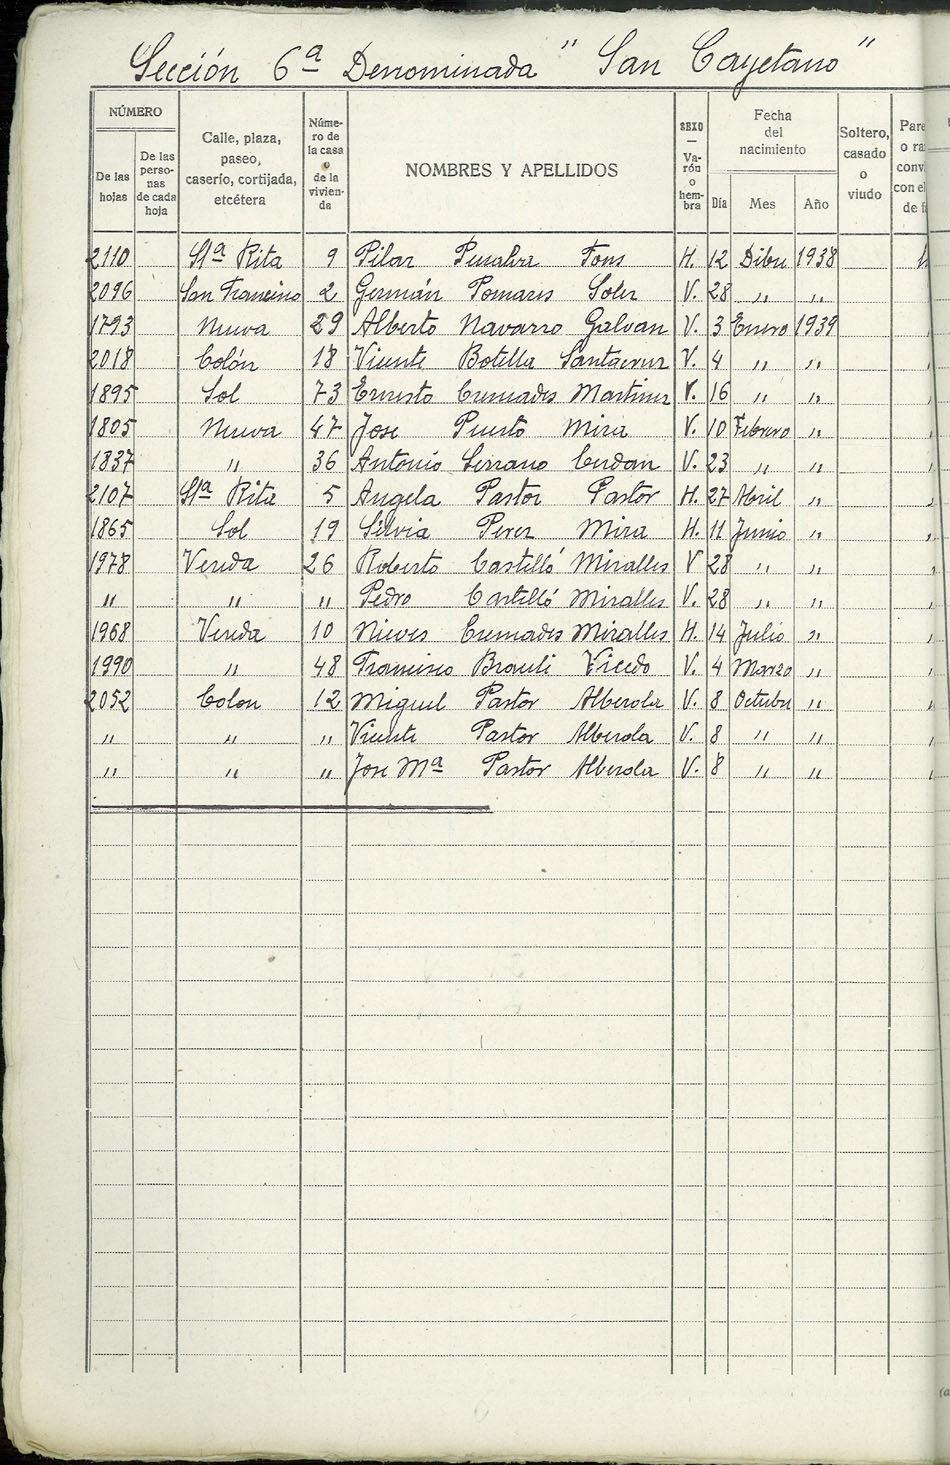 Sección 6ª Denominada " San Cayetano "
NÚMERO
De las hojas
De las perso- nas de cada hoja
Calle, plaza, paseo, caserío, cortijada, etcétera
Núme- ro de la casa o de la vivien- da
NOMBRES Y APELLIDOS
SEXO — Va- rón o hem- bra
Fecha del nacimiento
Día Mes Año
Soltero, casado o viudo
Pare
o ra
conv
con el
de f
2110 Stª Rita 9 Pilar Penalva Fons H. 12 Dibre 1938
2096 San Francisco 2 Germán Pomares Soler V. 28 " "
1793 Nueva 29 Alberto Navarro Galvan V. 3 Enero 1939
2018 Colón 18 Vicente Botella Santacruz V. 4 " "
1895 Sol 73 Ernesto Cremades Martinez V. 16 " "
1805 Nueva 47 Jose Puerto Mira V. 10 Febrero "
1837 " 36 Antonio Serrano Cerdan V. 23 " "
2107 Stª Rita 5 Angela Pastor Pastor H. 27 Abril "
1865 Sol 19 Silvia Perez Mira H. 11 Junio "
1978 Vereda 26 Roberto Castelló Miralles V 28 " "
" " " Pedro Castelló Miralles V. 28 " "
1968 Vereda 10 Nieves Cremades Miralles H. 14 Julio "
1990 " 48 Francisco Brauli Vicedo V. 4 Marzo "
2052 Colon 12 Miguel Pastor Alberola V. 8 Octubre "
" " " Vicente Pastor Alberola V. 8 " "
" " " Jose Mª Pastor Alberola V. 8 " "